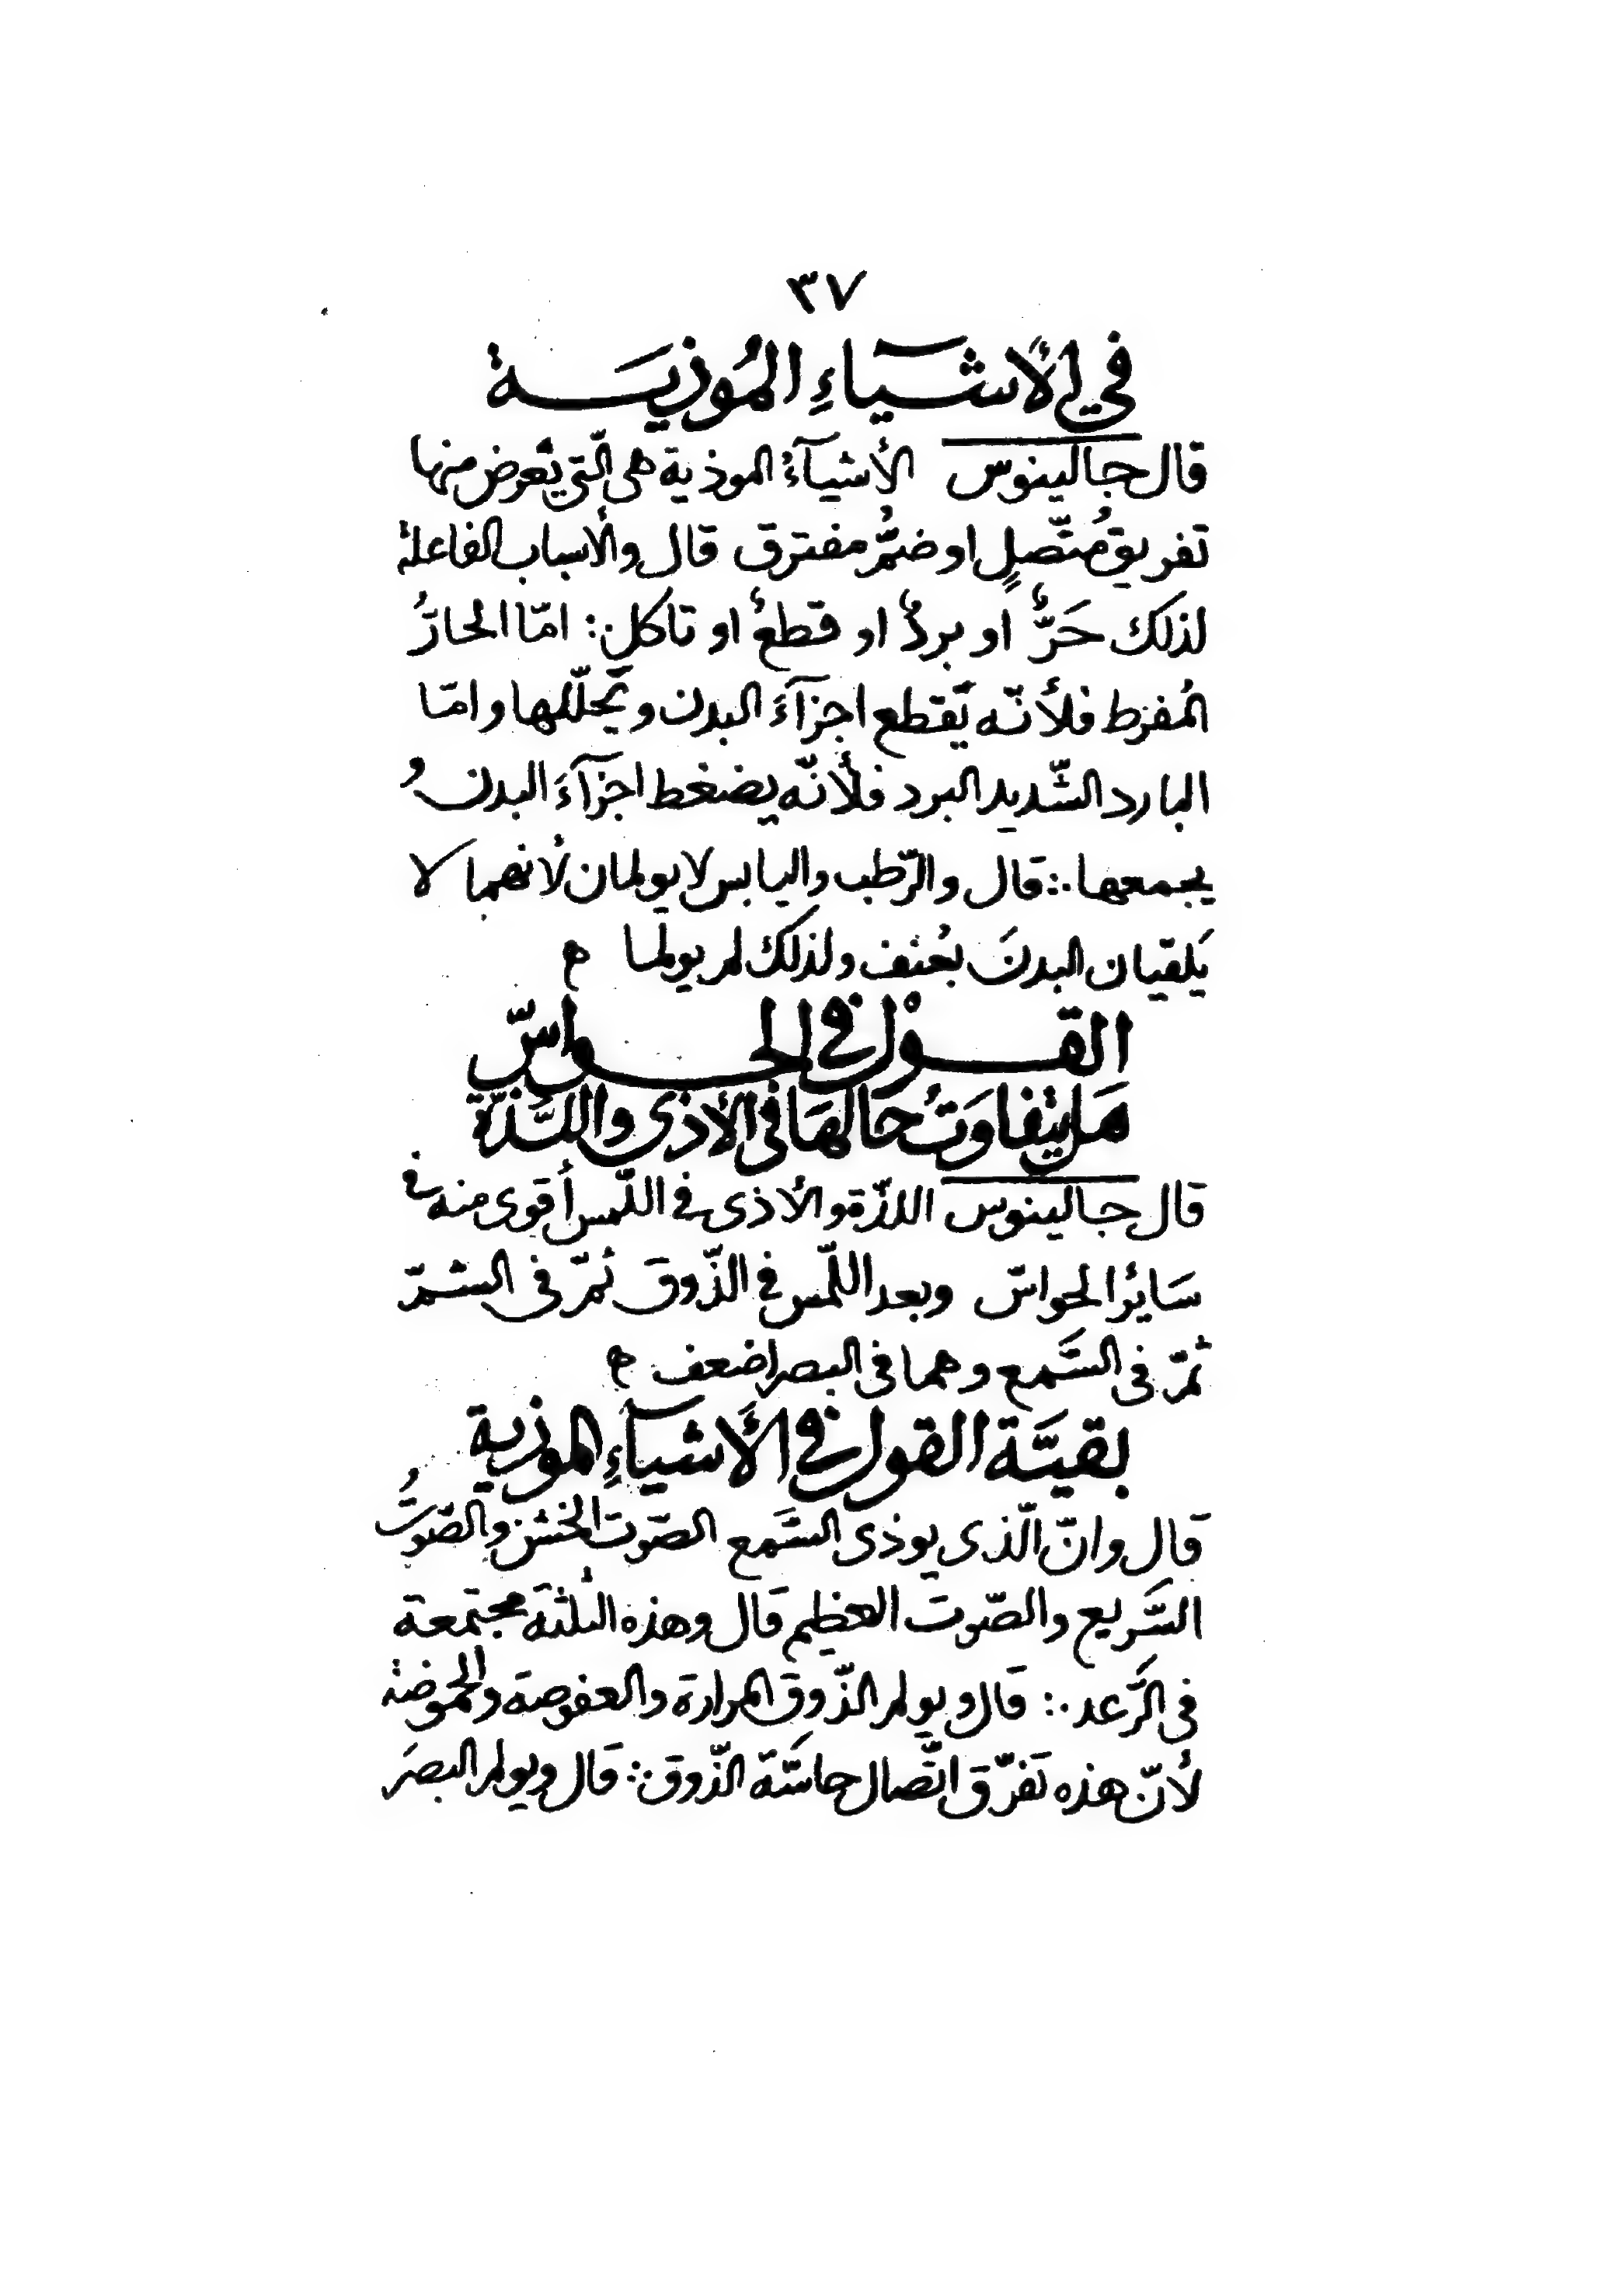 ٣٧
في الأشيآءِ المُوذيَة
قال جالينوس الأشيآءُ الموذية هى الّتى يَعرض منها
تفريقُ مُتّصلٍ او ضمُّ مفترق قال والأسباب الفاعلة
لذلك حَرٌّ او بردٌ او قطعٌ او تاكل ∴ امّا الحارُّ
المُفرط فلأنّه يَقطع اجزآءَ البدن ويَحلّلها وامّا
البارد الشّديد البرد فلأنّه يضغط اجزآءَ البدن و
يجمعها ∴ قال والرّطب واليابس لا يولمان لأنهما لا
يَلقيان البدنَ بعُنف ولذلك لم يولما ه
القوْل في الحواسّ
هَل يتفاوَتُ حَالهَا فى الأذى واللَّذّة
قال جالينوس اللذّة والأذى في اللّمس أقوى منه في
سَايرُ الحواسّ وبعد اللّمس في الذّوق ثمّ فى الشمّ
ثمّ فى السَّمع وهما فى البصر اضعف ه
بقيَّة القول في الأشيآءِ الموذية
قال وانّ الّذى يوذى السَّمع الصّوت الخشن والصّوتُ
السَّريع والصّوت العظيم قال وهذه الثلثة مجتمعة
فى الرَّعد ∴ قال ويولم الذّوق المرارة والعفوصة والحموضة
لأنّ هذه تفرّق اتّصال حاسَّة الذّوق ∴ قال ويولم البصَر